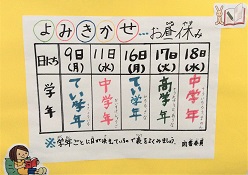 よみきかせ…お昼休み
日にち 9日(月) 11日(水) 16日(月) 17日(火) 18日(水)
学年 てい学年 中学年 てい学年 高学年 中学年
※学年ごとに日が決まっているので表をよくみましょう。 図書委員